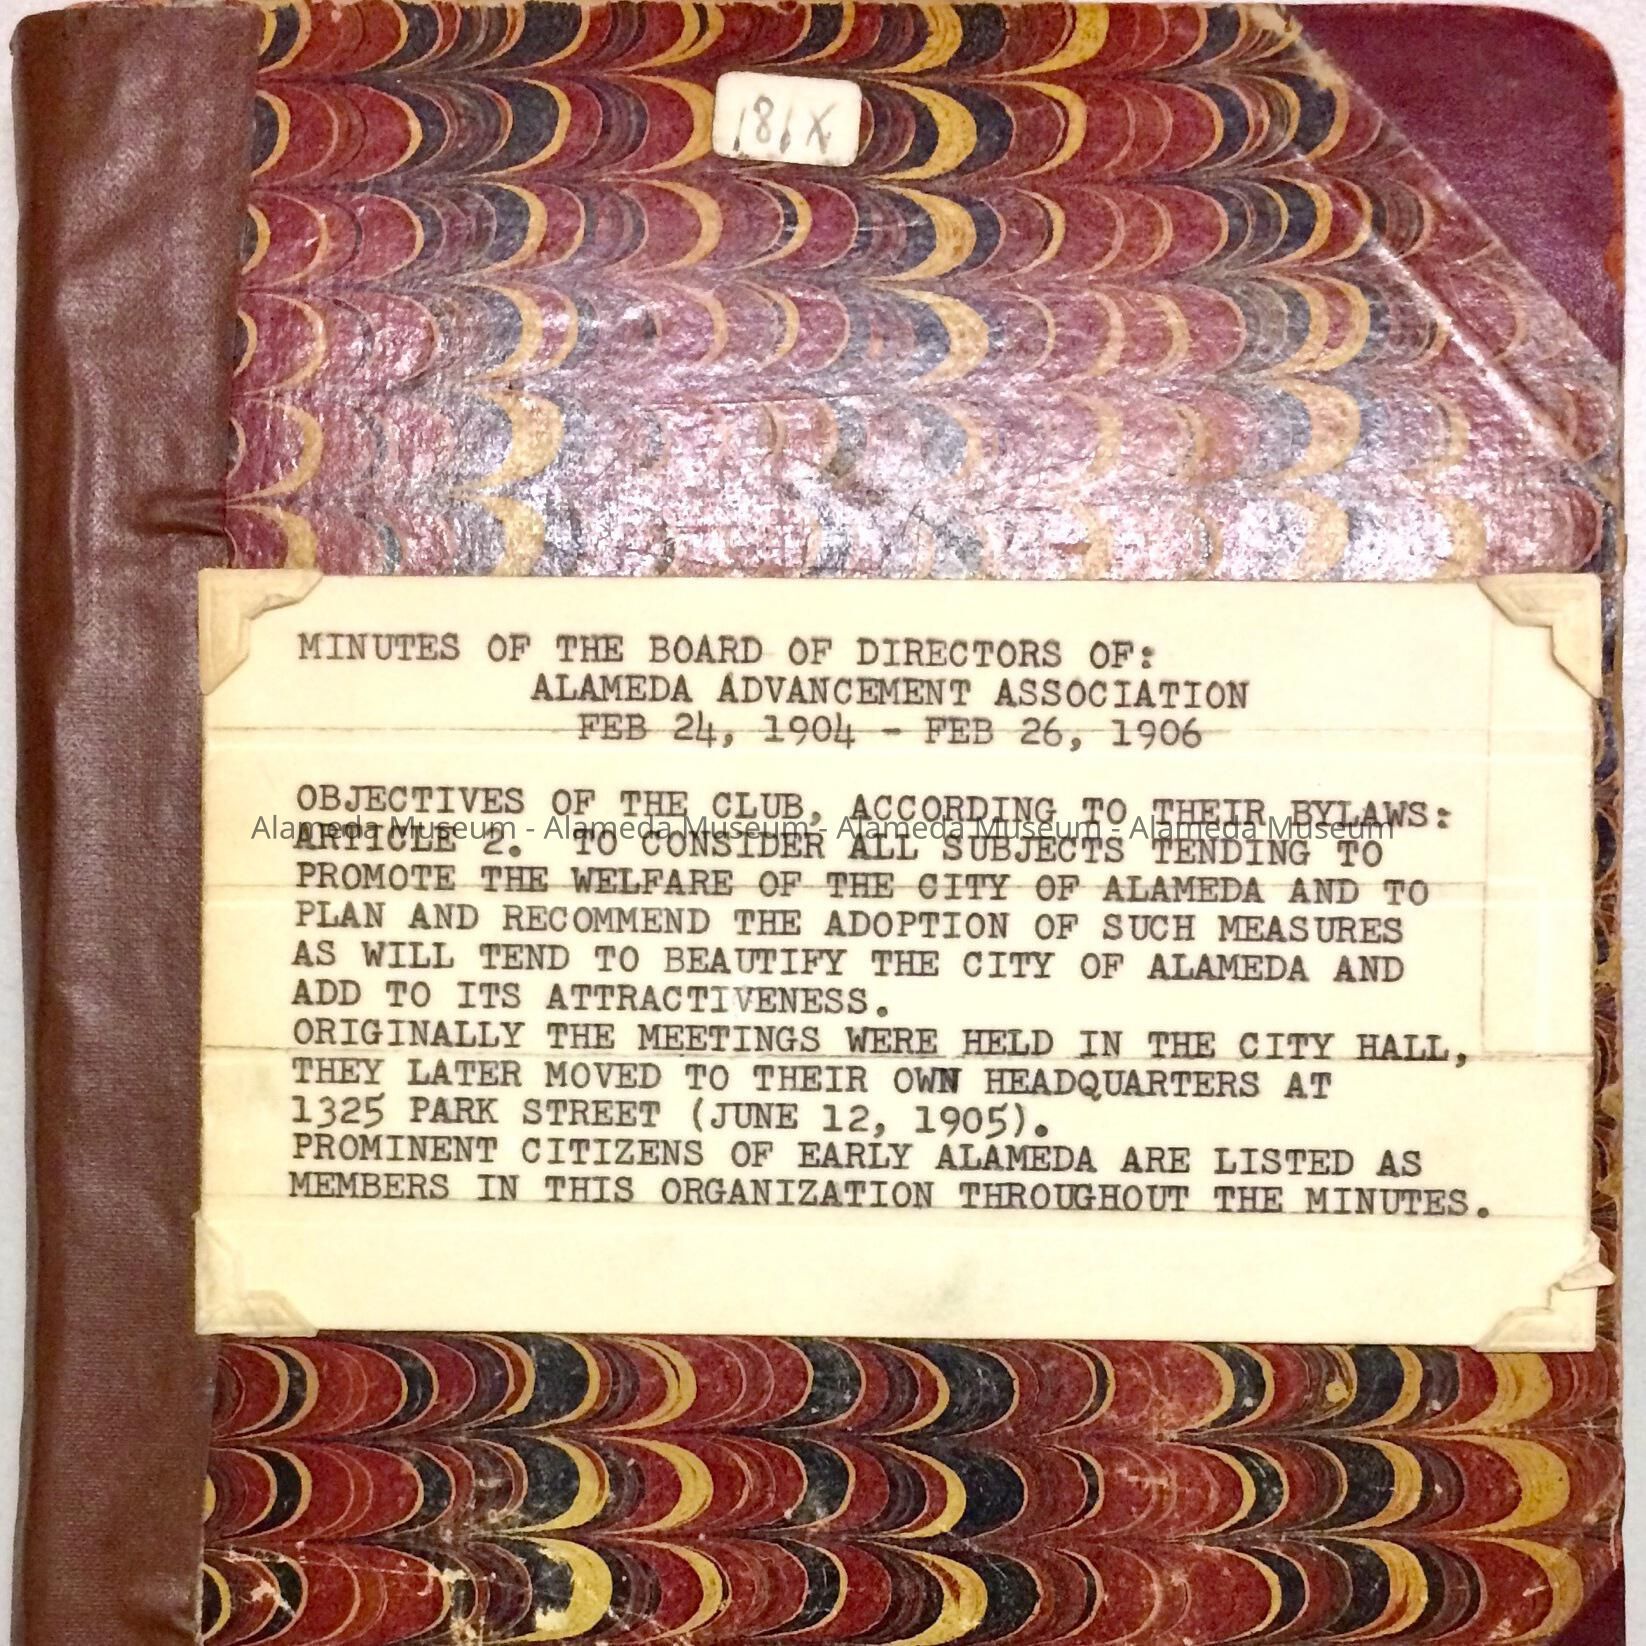 181X
MINUTES OF THE BOARD OF DIRECTORS OF:
ALAMEDA ADVANCEMENT ASSOCIATION
FEB 24, 1904 - FEB 26, 1906
OBJECTIVES OF THE CLUB, ACCORDING TO THEIR BYLAWS:
Alameda Museum - Alameda Museum - Alameda Museum - Alameda Museum
ARTICLE 2. TO CONSIDER ALL SUBJECTS TENDING TO
PROMOTE THE WELFARE OF THE CITY OF ALAMEDA AND TO
PLAN AND RECOMMEND THE ADOPTION OF SUCH MEASURES
AS WILL TEND TO BEAUTIFY THE CITY OF ALAMEDA AND
ADD TO ITS ATTRACTIVENESS.
ORIGINALLY THE MEETINGS WERE HELD IN THE CITY HALL,
THEY LATER MOVED TO THEIR OWN HEADQUARTERS AT
1325 PARK STREET (JUNE 12, 1905).
PROMINENT CITIZENS OF EARLY ALAMEDA ARE LISTED AS
MEMBERS IN THIS ORGANIZATION THROUGHOUT THE MINUTES.